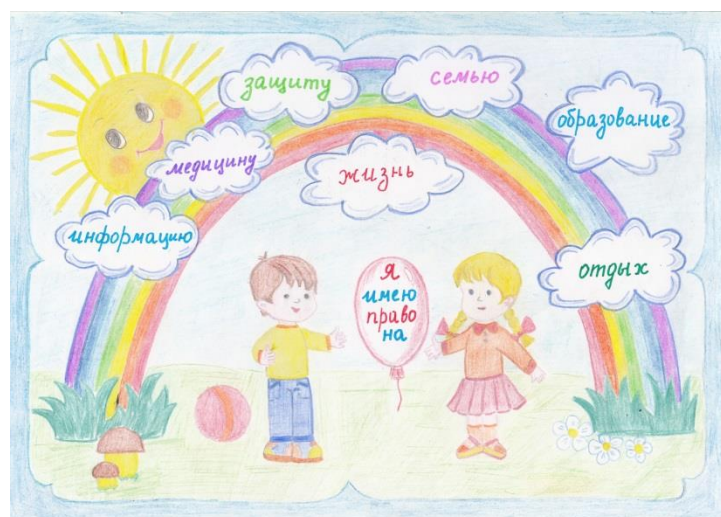 защиту
семью
образование
медицину
жизнь
информацию
отдых
Я
имею
право
на